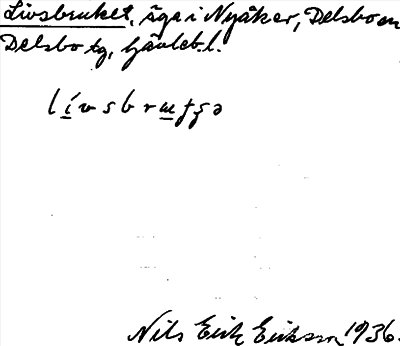 Livsbruket, äga i Nyåker, Delsbo sn
Delsbo tg, Gävleb.l.
lívsbrɯƭʂə
Nils Erik Erikson 1936.